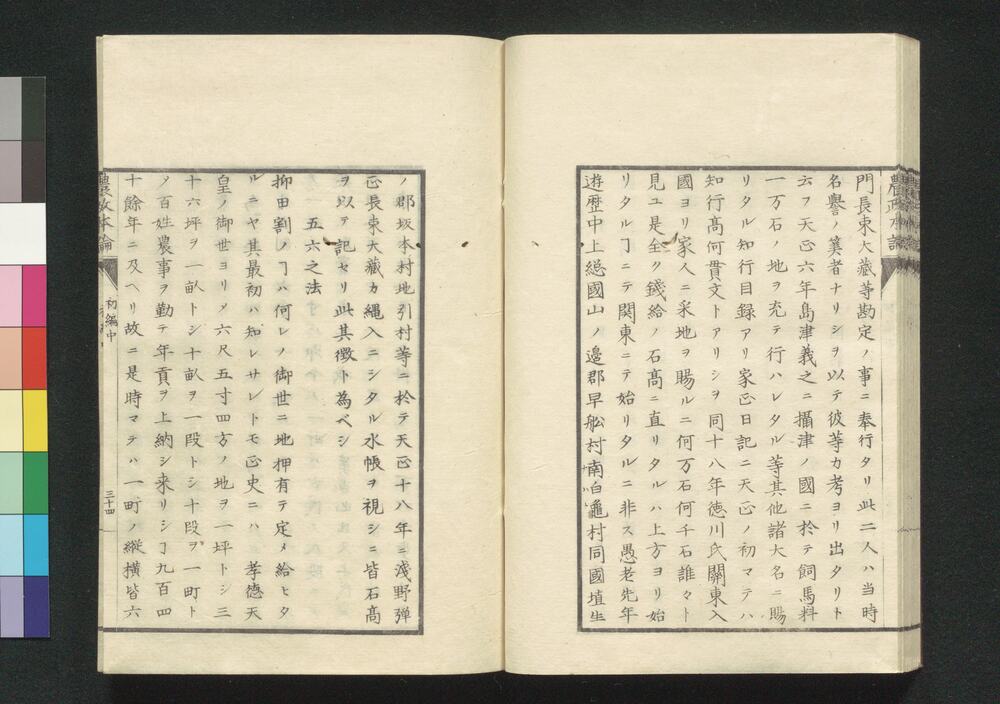 門長束大藏等勘定ノ事ニ奉行タリ此二人ハ当時
名譽ノ筭者ナリシヲ以テ彼等カ考ヨリ出タリト
云フ天正六年島津義之ニ攝津ノ國ニ於テ飼馬料
一万石ノ地ヲ充テ行ハレタル等其他諸大名ニ賜
リタル知行目録アリ家正日記ニ天正ノ初マテハ
知行高何貫文トアリシヲ同十八年德川氏關東入
國ヨリ家人ニ采地ヲ賜ルニ何万石何千石誰々ト
見ユ是全ク錢給ノ石高ニ直リタルハ上方ヨリ始
リタルヿニテ関東ニテ始リタルニ非ス愚老先年
遊歴中上総國山ノ邊郡早舩村南白龜村同國埴生
ノ郡坂本村地引村等ニ於テ天正十八年ニ淺野弾
正長束大藏カ繩入ニシタル水帳ヲ視シニ皆石高
ヲ以テ記セリ此其徴ト為ベシ
五六之法
抑田割ノヿハ何レノ御世ニ地押有テ定メ給ヒタ
ルニヤ其最初ハ知レサレトモ正史ニハ 孝德天
皇ノ御世ヨリメ六尺五寸四方ノ地ヲ一坪トシ三
十六坪ヲ一畝トシ十畝ヲ一段トシ十段ヲ一町ト
ノ百姓農事ヲ勤テ年貢ヲ上納シ来リシヿ九百四
十餘年ニ及ヘリ故ニ是時マテハ一町ノ縦横皆六
農政本論
初編中
三十四